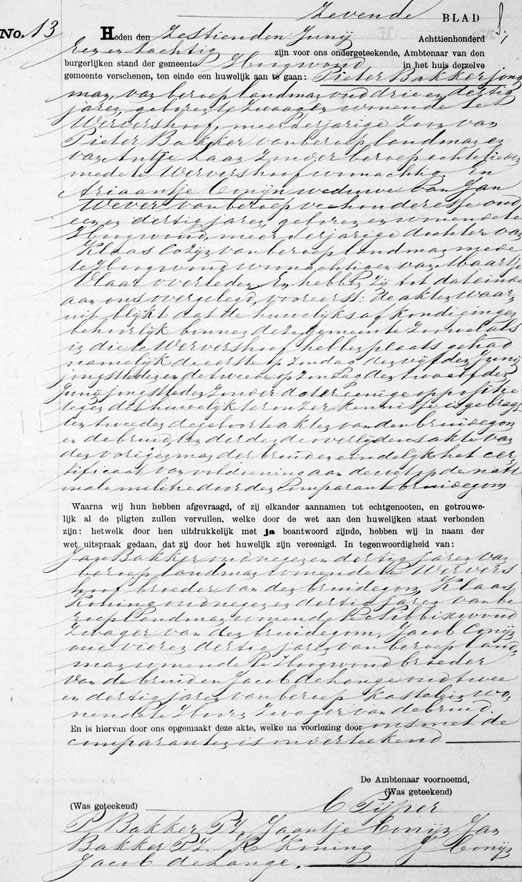 Zevende BLAD 8
No. 13 Heden den Zestienden Junij Achttienhonderd
Een en tachtig zijn voor ons ondergeteekende, Ambtenaar van den
burgerlijken stand der gemeente Hoogwoud in het huis derzelve
gemeente verschenen, ten einde een huwelijk aan te gaan: Pieter Bakker jong
man, van beroep landman oud drie en dertig
jaren, geboren te Zwaag en wonende te
Wervershoof, meerderjarige Zoon van
Pieter Bakker van beroep landman en
van Antje Laan Zonder beroep echtelieden
mede te Wervershoof woonachtig En
Ariaantje Conijn weduwe van Jan
Wever van beroep veehouderesse oud
een en dertig jaren, geboren en wonende te
Hoogwoud, meerderjarige dochter van
Klaas Conijn van beroep landman mede
te Hoogwoud woonachtig en van Maartje
Slaat overleden En hebben zij tot dat einde
aan ons overgelegd, vooreerst: de akten waar
uit blijkt dat de huwelijksafkondigingen
behoorlijk binnen deze gemeente Zoowel als
in die te Wervershoof hebben plaats gehad
namelijk de eerste op Zondag den vijfden Junij
jongstleden en de tweede op Zondag den twaalfden
Junij jongstleden Zonder dat er eenige oppositie
tegen dit huwelijk er onzer kennisse is gebragt
ten tweede de geboorteakten van den bruidegom
en de bruid, ten derde de overlijdensakte van
den vorigen man der bruid en eindelijk het cer
tificaat van voldoening aan de wet op de natio
nale militie door den Comparant bruidegom
Waarna wij hun hebben afgevraagd, of zij elkander aannamen tot echtgenooten, en getrouwe-
lijk al de pligten zullen vervullen, welke door de wet aan den huwelijken staat verbonden
zijn: hetwelk door hen uitdrukkelijk met ja beantwoord zijnde, hebben wij in naam der
wet uitspraak gedaan, dat zij door het huwelijk zijn vereenigd. In tegenwoordigheid van:
Jan Bakker oud negen en dertig jaren van
beroep landman wonende te Wervers
hoof broeder van den bruidegom, Klaas
Koning oud negen en dertig jaren van be
roep landman wonende te Sijbekarspel
Zwager van den bruidegom, Jacob Conijn
oud vier en dertig jaren van beroep land
man wonende te Hoogwoud broeder
van de bruid en Jacob de Lange oud twee
en dertig jaren van beroep Kastelein wo
nende te Hoorn Zwager van de bruid.
En is hiervan door ons opgemaakt deze akte, welke na voorlezing door ons met de
comparanten is onderteekend
De Ambtenaar voornoemd,
(Was geteekend) (Was geteekend)
C Pijper
P. Bakker Pz, Jaantje Conijn Jan
Bakker Pz. K Koning J Conijn
Jacob de Lange.